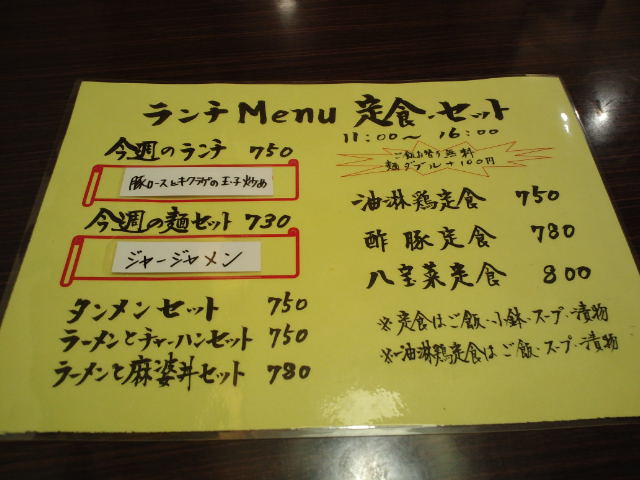 ランチ Menu 定食・セット
11:00〜 16:00
今週のランチ 750
豚ロースとキクラゲの玉子炒め
今週の麺セット 730
ジャージャメン
タンメンセット 750
ラーメンとチャーハンセット 750
ラーメンと麻婆丼セット 780
ご飯お替り無料
麺ダブル+100円
油淋鶏定食 750
酢豚定食 780
八宝菜定食 800
※定食はご飯・小鉢・スープ・漬物
※油淋鶏定食はご飯・スープ・漬物